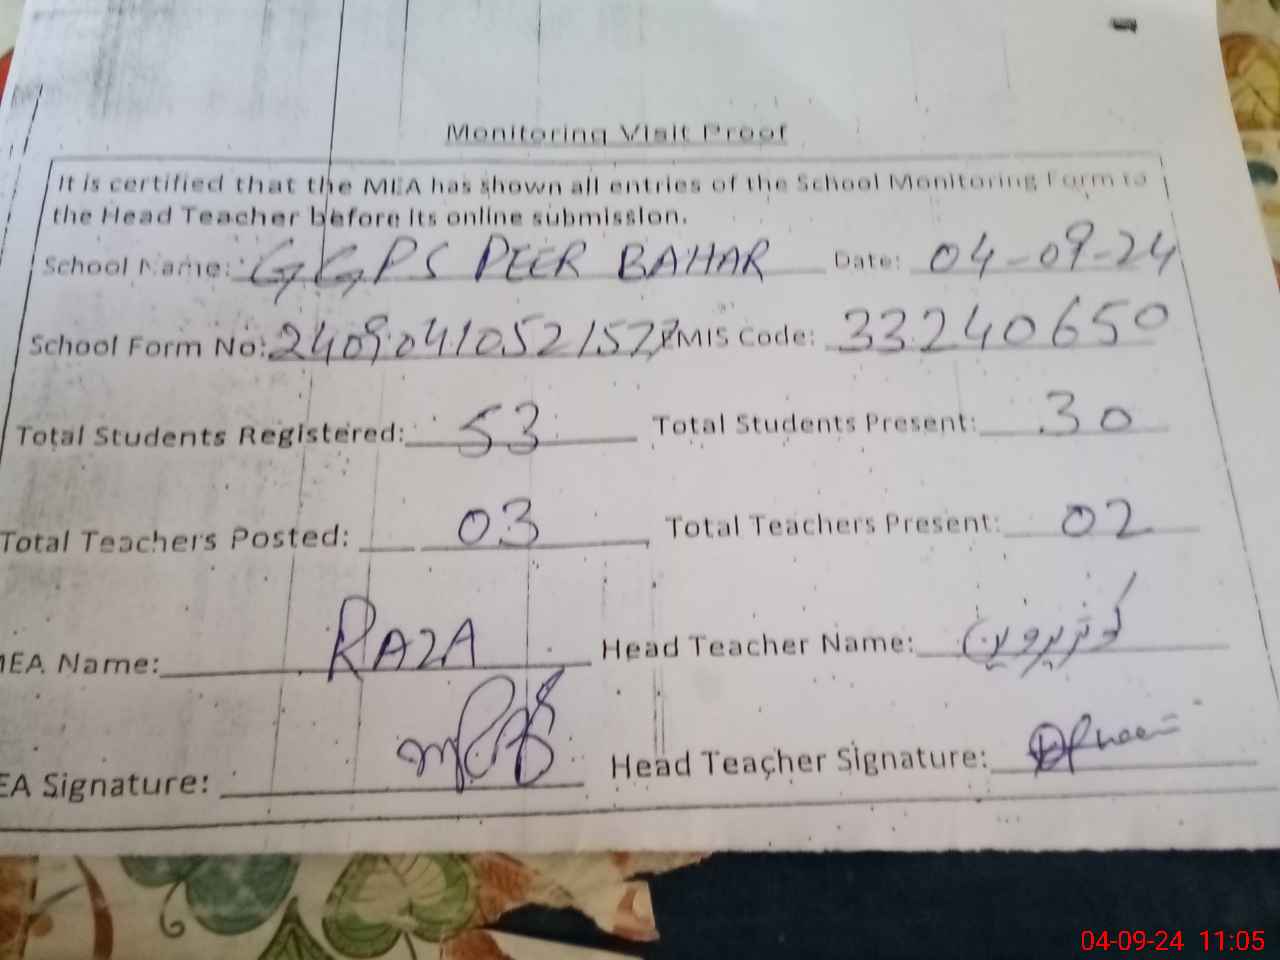 Monitoring Visit Proof
It is certified that the MEA has shown all entries of the School Monitoring Form to
the Head Teacher before its online submission.
School Name: GGPS PEER BAHAR Date: 04-09-24
School Form No: 2409041052157 EMIS Code: 33240650
Total Students Registered: 53 Total Students Present: 30
Total Teachers Posted: 03 Total Teachers Present: 02
MEA Name: RAZA Head Teacher Name: کوثر پروین
EA Signature: Head Teacher Signature:
04-09-24 11:05